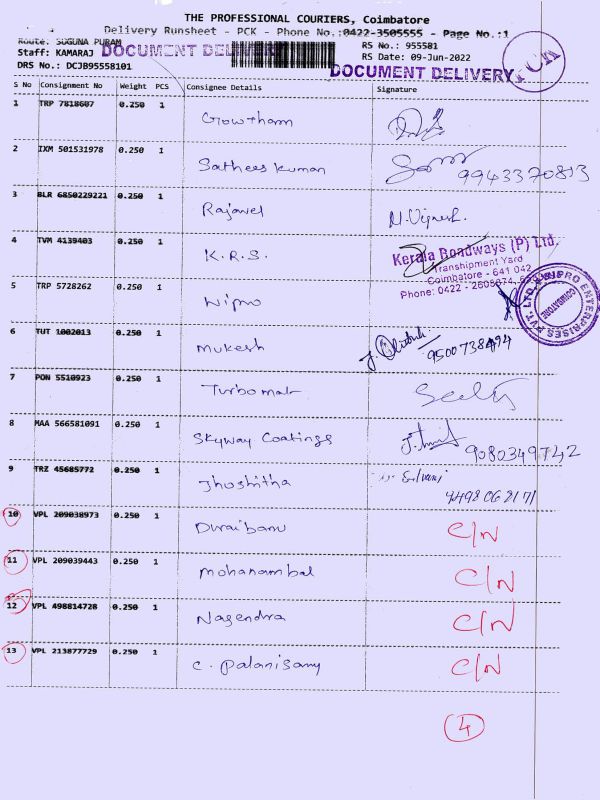 THE PROFESSIONAL COURIERS, Coimbatore
Delivery Runsheet - PCK - Phone No.:0422-3505555 - Page No.:1
Route: SUGUNA PURAM
RS No.: 955581
Staff: KAMARAJ
DOCUMENT DELIVERY
RS Date: 09-Jun-2022
DRS No.: DCJB95558101
DOCUMENT DELIVERY
PCK
S No Consignment No Weight PCS Consignee Details Signature
1 TRP 7818607 0.250 1 Gowtham
2 IXM 501531978 0.250 1 Satheeskumar 9943370813
3 BLR 6850229221 0.250 1 Rajavel N. Vignesh.
4 TVM 4139403 0.250 1 K.R.S.
Kerala Roadways (P) Ltd.
Transhipment Yard
Coimbatore - 641 042
Phone: 0422 -
5 TRP 5728262 0.250 1 Wipro
WIPRO ENTERPRISES PVT. LTD.
COIMBATORE
6 TUT 1002013 0.250 1 Mukesh
7 PON 5510923 0.250 1 Turbomat
8 MAA 566581091 0.250 1 Skyway Coatings 9080349742
9 TRZ 45685772 0.250 1 Jhoshitha
10 VPL 209038973 0.250 1 Duraibanu C/N
11 VPL 209039443 0.250 1 Mohanambal C/N
12 VPL 498814728 0.250 1 Nagendra C/N
13 VPL 213877729 0.250 1 C. Palanisamy C/N
4